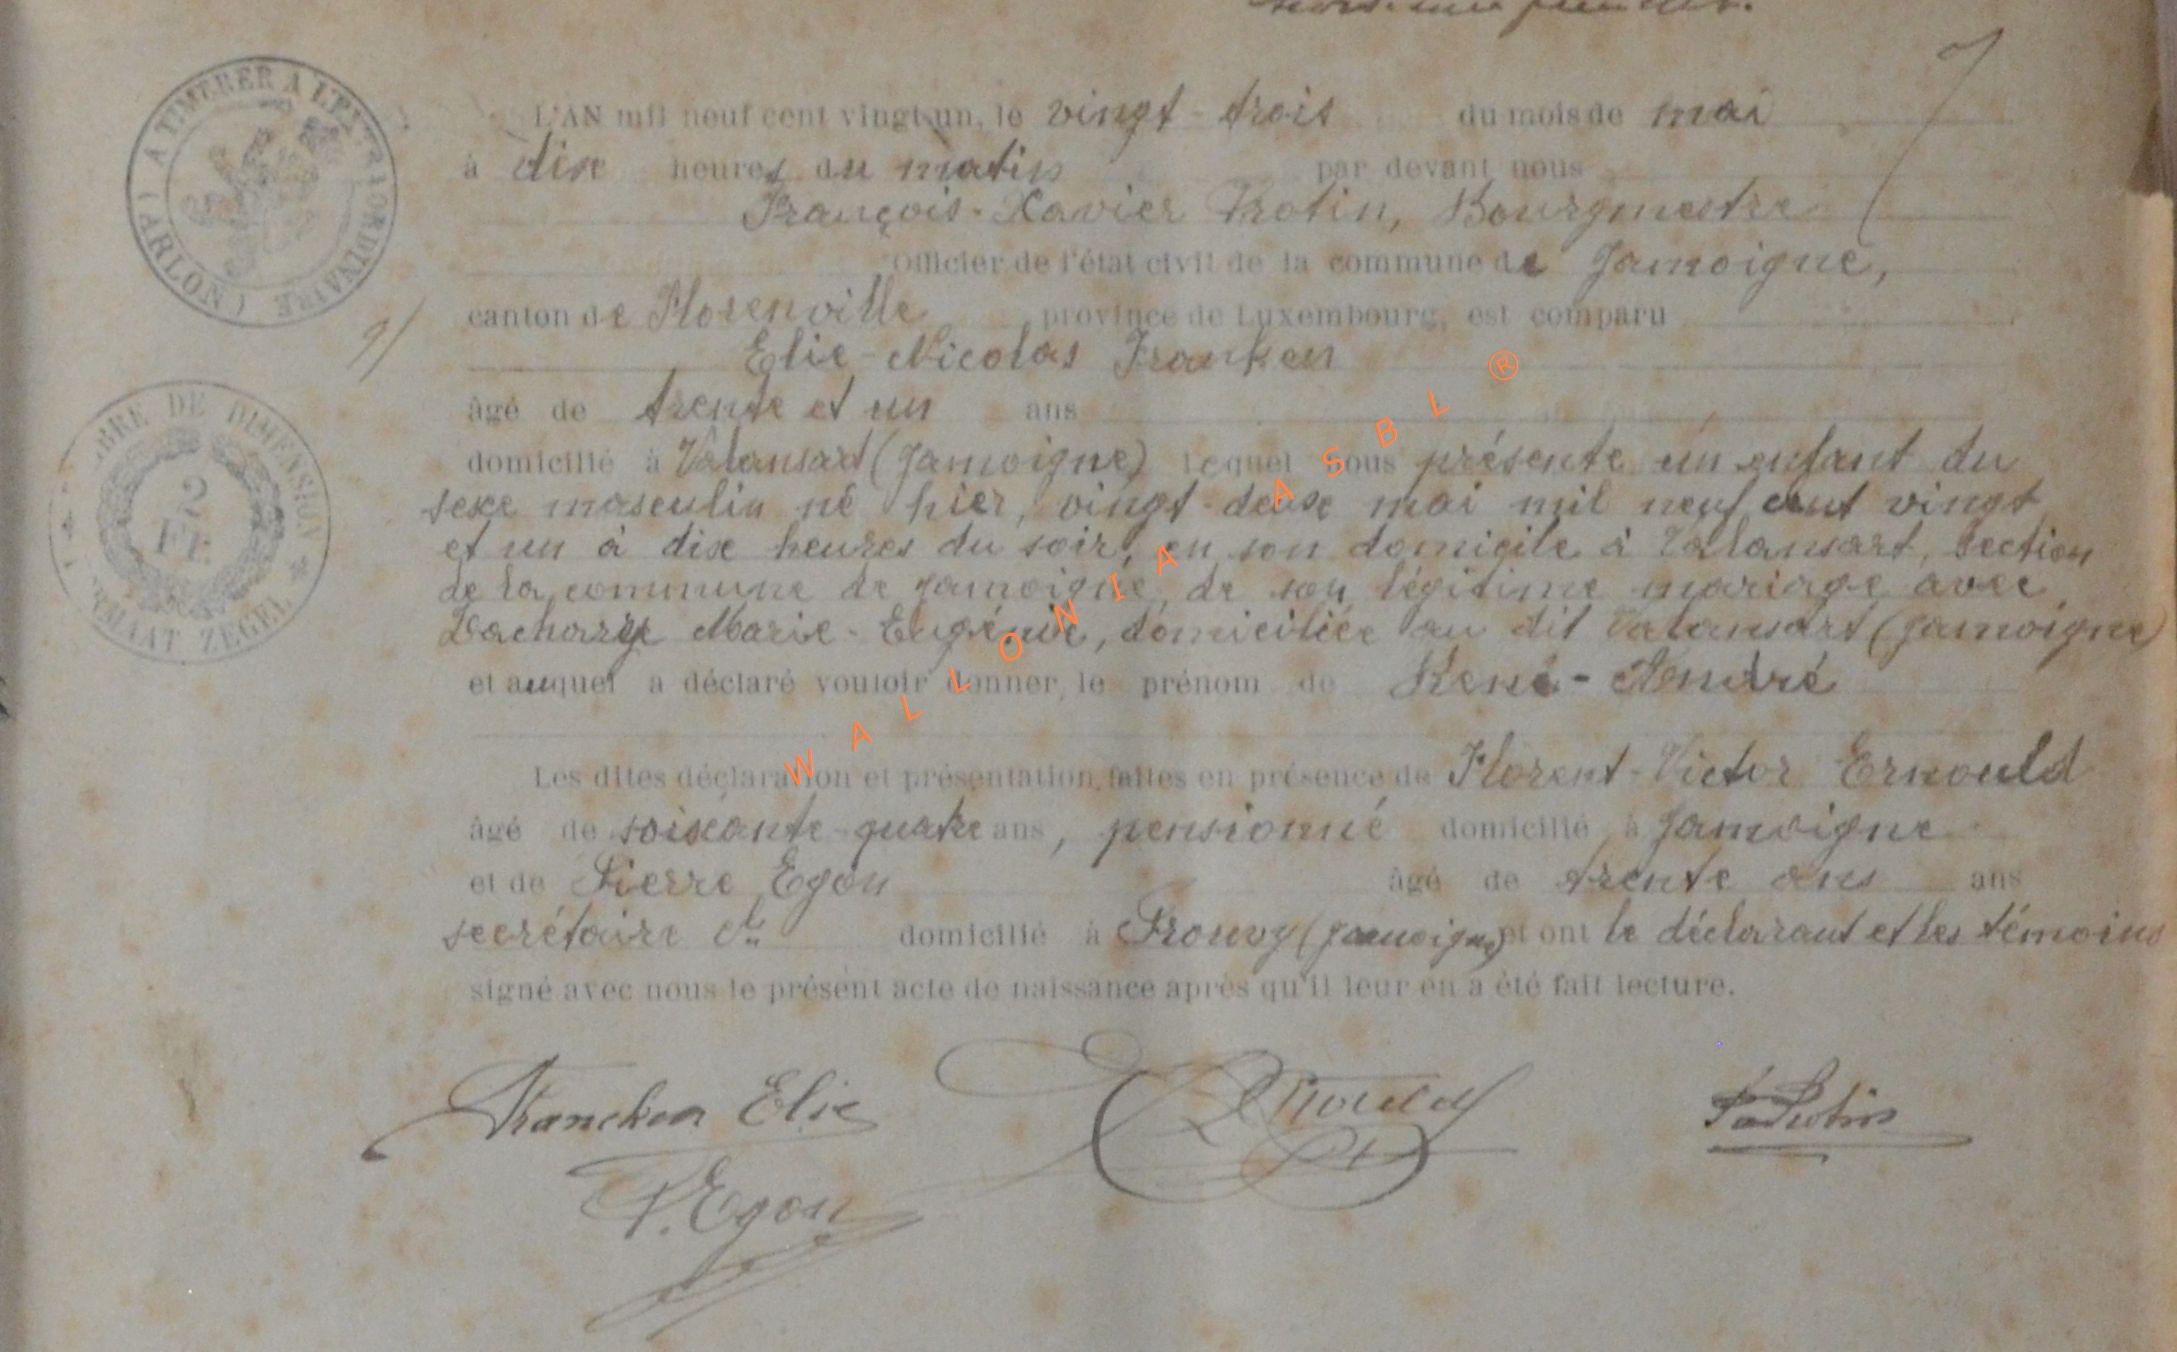 L'AN mil neuf cent vingt un, le vingt-trois du mois de mai
à dix heures du matin par devant nous
François-Xavier Protin, Bourgmestre
Officier de l'état civil de la commune de Jamoigne,
canton de Florenville province de Luxembourg, est comparu
9/
Elie-Nicolas Franken
âgé de trente et un ans
domicilié à Valansart (Jamoigne) lequel nous présente un enfant du
sexe masculin né hier, vingt-deux mai mil neuf cent vingt
et un à dix heures du soir, en son domicile à Valansart, section
de la commune de Jamoigne, de son légitime mariage avec
Marie-Eugénie, domiciliée au dit Valansart (Jamoigne)
et auquel a déclaré vouloir donner le prénom de René-André
Les dites déclaration et présentation faites en présence de Florent-Victor Ernould
âgé de soixante-quatre ans, pensionné domicilié à Jamoigne
et de Pierre Egon âgé de trente ans ans
secrétaire cl domicilié à Prouvy (Jamoigne) et ont le déclarant et les témoins
signé avec nous le présent acte de naissance après qu'il leur en a été fait lecture.
Francken Elie
Ernould
P. Egon
A TIMBRER A L'EXTRAORDINAIRE (ARLON)
TIMBRE DE DIMENSION
2
Fr
FORMAAT ZEGEL
WALLONIA ASBL ®